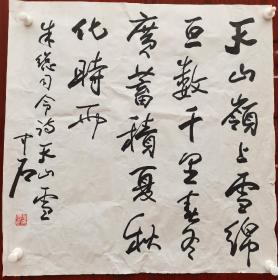 天山嶺上雪綿
亘數千里春冬
廣蓄積夏秋
化時雨
朱總司令詩天山雪
中石